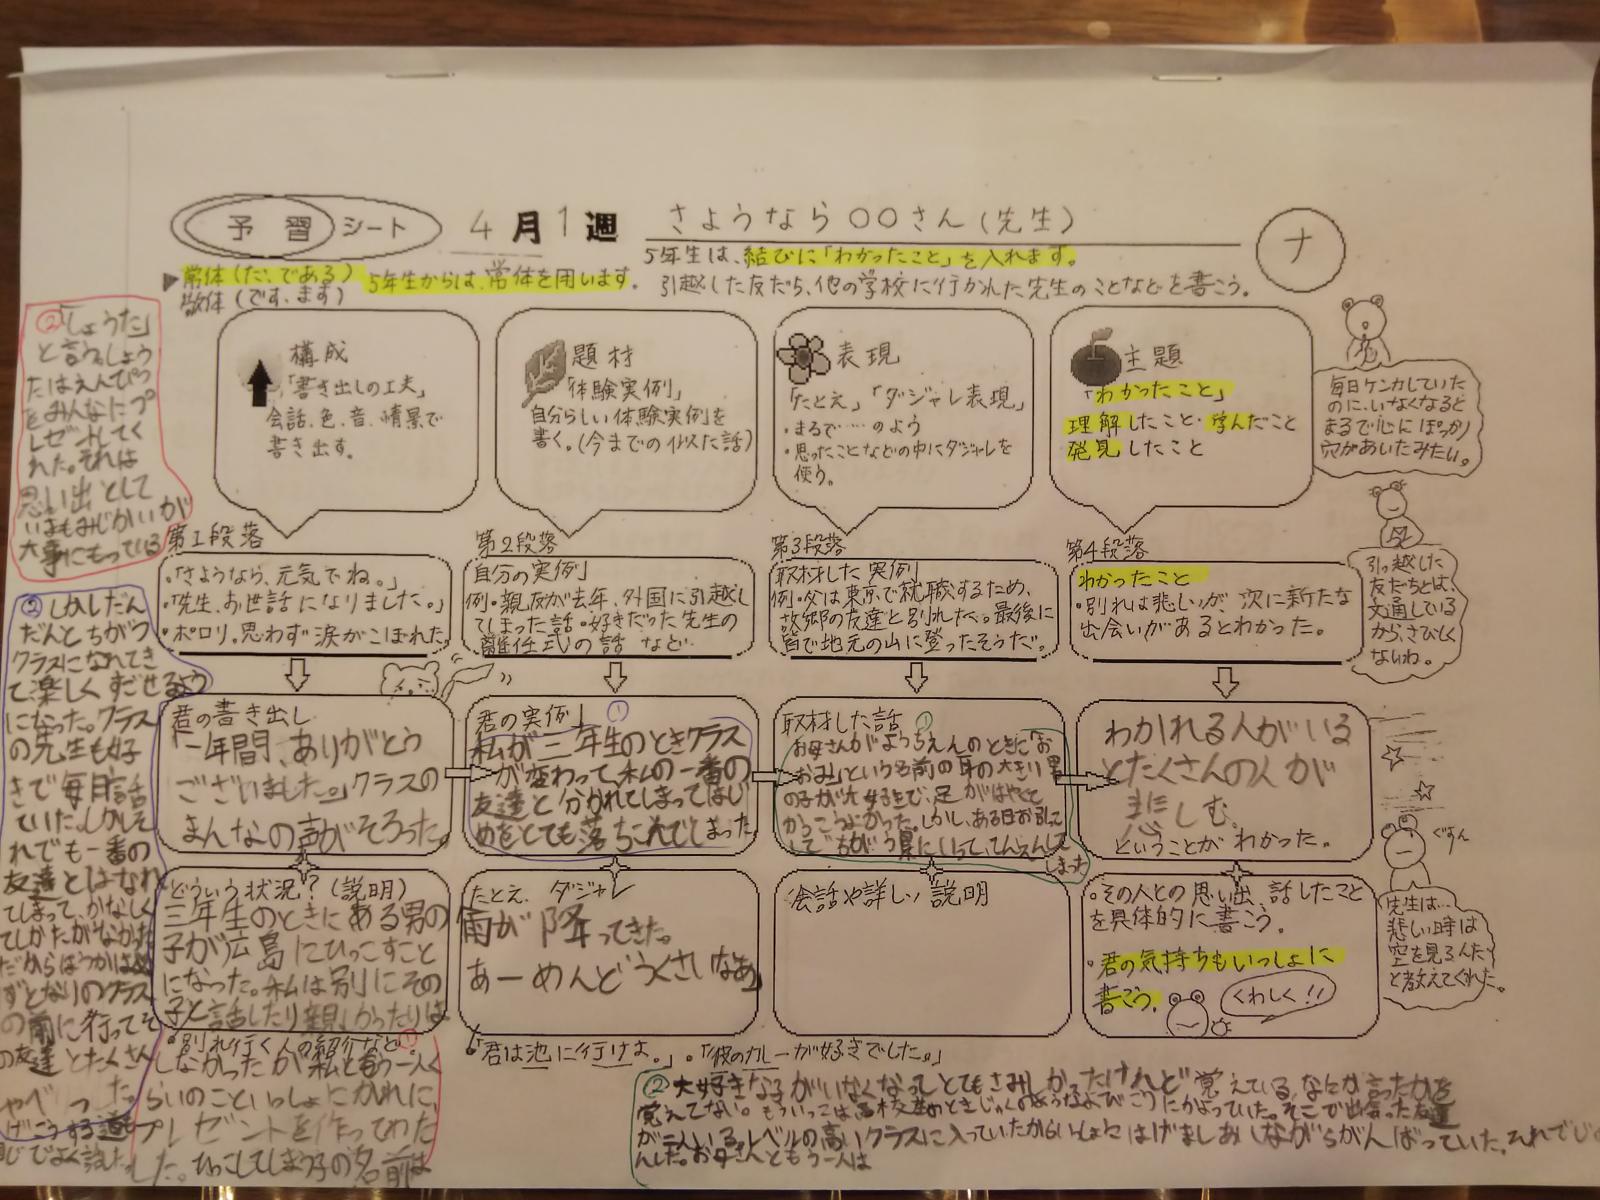 予習シート 4月1週 さようなら○○さん(先生)
ナ
5年生は、結びに「わかったこと」を入れます。
▶常体(だ、である) 5年生からは、常体を用います。
敬体(です、ます)
引越した友だち、他の学校に行かれた先生のことなどを書こう。
構成
「書き出しの工夫」
会話、色、音、情景で
書き出す。
題材
「体験実例」
自分らしい体験実例を
書く。(今までの似た話)
表現
「たとえ」「ダジャレ表現」
・まるで……のよう
・思ったことなどの中にダジャレを
使う。
主題
「わかったこと」
理解したこと・学んだこと
発見したこと
毎日ケンカしていた
のに、いなくなると
まるで心にぽっかり
穴があいたみたい。
第1段落
・「さようなら、元気でね。」
・「先生、お世話になりました。」
・ポロリ。思わず涙がこぼれた。
第2段落
自分の実例
例・親友が去年、外国に引越し
てしまった話・好きだった先生の
離任式の話 など
第3段落
取材した実例
例・父は東京で就職するため、
故郷の友達と別れた。最後に
皆で地元の山に登ったそうだ。
第4段落
わかったこと
・別れは悲しいが、次に新たな
出会いがあるとわかった。
引っ越した
友だちとは、
文通している
から、さびしく
ないわ。
君の書き出し
「一年間、ありがとう
ございました。」クラスの
みんなの声がそろった。
君の実例 ①
私が三年生のときクラス
が変わって、私の一番の
友達と分かれてしまってはじ
めをとても落ちこんでしまった
取材した話 ①
お母さんがようちえんのときに「お
おみ」という名前の耳の大きい男
の子が大好きで、足がはやくと
かっこうよかった。しかし、ある日お引こし
してちがう県にいって、てんえんして
しまった
わかれる人がいる
とたくさんの人が
悲しむ。
ということがわかった。
どういう状況?(説明)
三年生のときにある男の
子が広島にひっこすこと
になった。私は別にその
子と話したり親しかったりは
・別れ行く人の紹介など ①
しなかったが私ともう一人く
らいのこといっしょにかれに、
プレゼントを作ってわた
した。ひっこしてしまう子の名前は
②「しょうた」
と言う。しょう
たはえんぴつ
をみんなにプ
レゼントしてく
れた。それは
思い出として
いまもみじかいが
大事にもっている
たとえ、ダジャレ
雨が降ってきた。
あーめんどうくさいなあ
・「君は池に行けよ。」・「彼のカレーが好きでした。」
会話や詳しい説明
・その人との思い出、話したこと
を具体的に書こう。
・君の気持ちもいっしょに
書こう。
くわしく!!
ぐすん
先生は…
悲しい時は
空を見るんだ
と教えてくれた。
②しかしだん
だんとちがう
クラスになれてき
て、楽しくすごせるよう
になった。クラス
の先生も好
きで毎日話
していた。しかしそ
れでも一番の
友達とはなれ
てしまって、かなしく
てしかたがなかった
だからほうかは
ずとなりのクラス
の前に行ってそ
の友達とたくさん
②大好きな子がいなくなってとてもさみしかったけれど覚えている。なにか言ったかを
覚えてない。